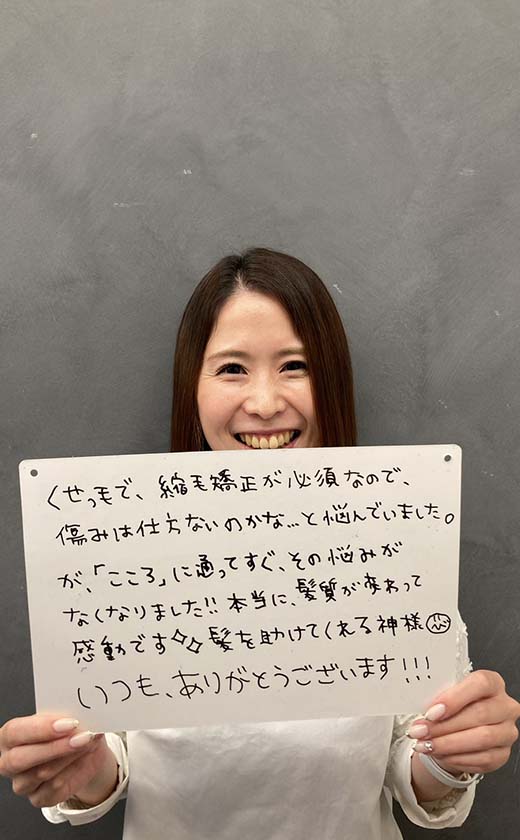 くせっ毛で、縮毛矯正が必須なので、
傷みは仕方ないのかな…と悩んでいました。
が、「こころ」に通ってすぐ、その悩みが
なくなりました!!本当に、髪質が変わって
感動です✧✧髪を助けてくれる神様
いつも、ありがとうございます!!!